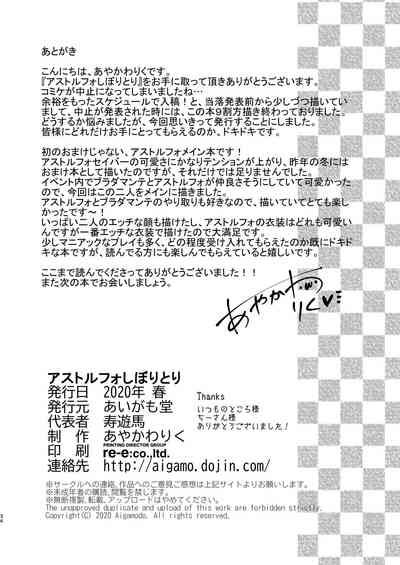 あとがき
こんにちは、あやかわりくです。
『アストルフォしぼりとり』をお手に取って頂きありがとうございます。
コミケが中止になってしまいましたね…
余裕をもったスケジュールで入稿!と、当落発表前から少しづつ描いていまして、中止が発表された時には、この本9割方描き終わっておりました。
どうするか悩みましたが、今回思いきって発行することにしました。
皆様にどれだけお手にとってもらえるのか、ドキドキです。
初のおまけじゃない、アストルフォメイン本です!
アストルフォセイバーの可愛さにかなりテンションが上がり、昨年の冬にはおまけ本として描いたのですが、それだけでは足りませんでした。
イベント内でブラダマンテとアストルフォが仲良さそうにしていて可愛かったので、今回はこの二人をメインに描きました。
アストルフォとブラダマンテのやり取りも好きなので、描いていてとても楽しかったです～!
いっぱい二人のエッチな顔も描けたし、アストルフォの衣装はどれも可愛いんですが一番エッチな衣装で描けたので大満足です。
少しマニアックなプレイも多く、どの程度受け入れてもらえたのか既にドキドキな本ですが、読んでる方にも楽しんでもらえていると嬉しいです。
ここまで読んでくださってありがとうございました!!
また次の本でお会いしましょう。
あやかわりく
アストルフォしぼりとり
発行日 2020年 春
発行元 あいがも堂
代表者 寿遊馬
制作 あやかわりく
印刷 PRINTING DIRECTOR GROUP re-e:co.,ltd.
連絡先 http://aigamo.dojin.com/
Thanks
いつものところ様
ちーさん様
ありがとうございました!
※サークルへの連絡、作品へのご意見ご感想は上記サイトよりお願いします。
※未成年者の購読、閲覧を禁じます。
※無断複製、転載、アップロードはやめてください。
The unapproved duplicate and upload of this work are forbidden strictly.
Copyright(C) 2020 Aigamodo. All rights reserved.